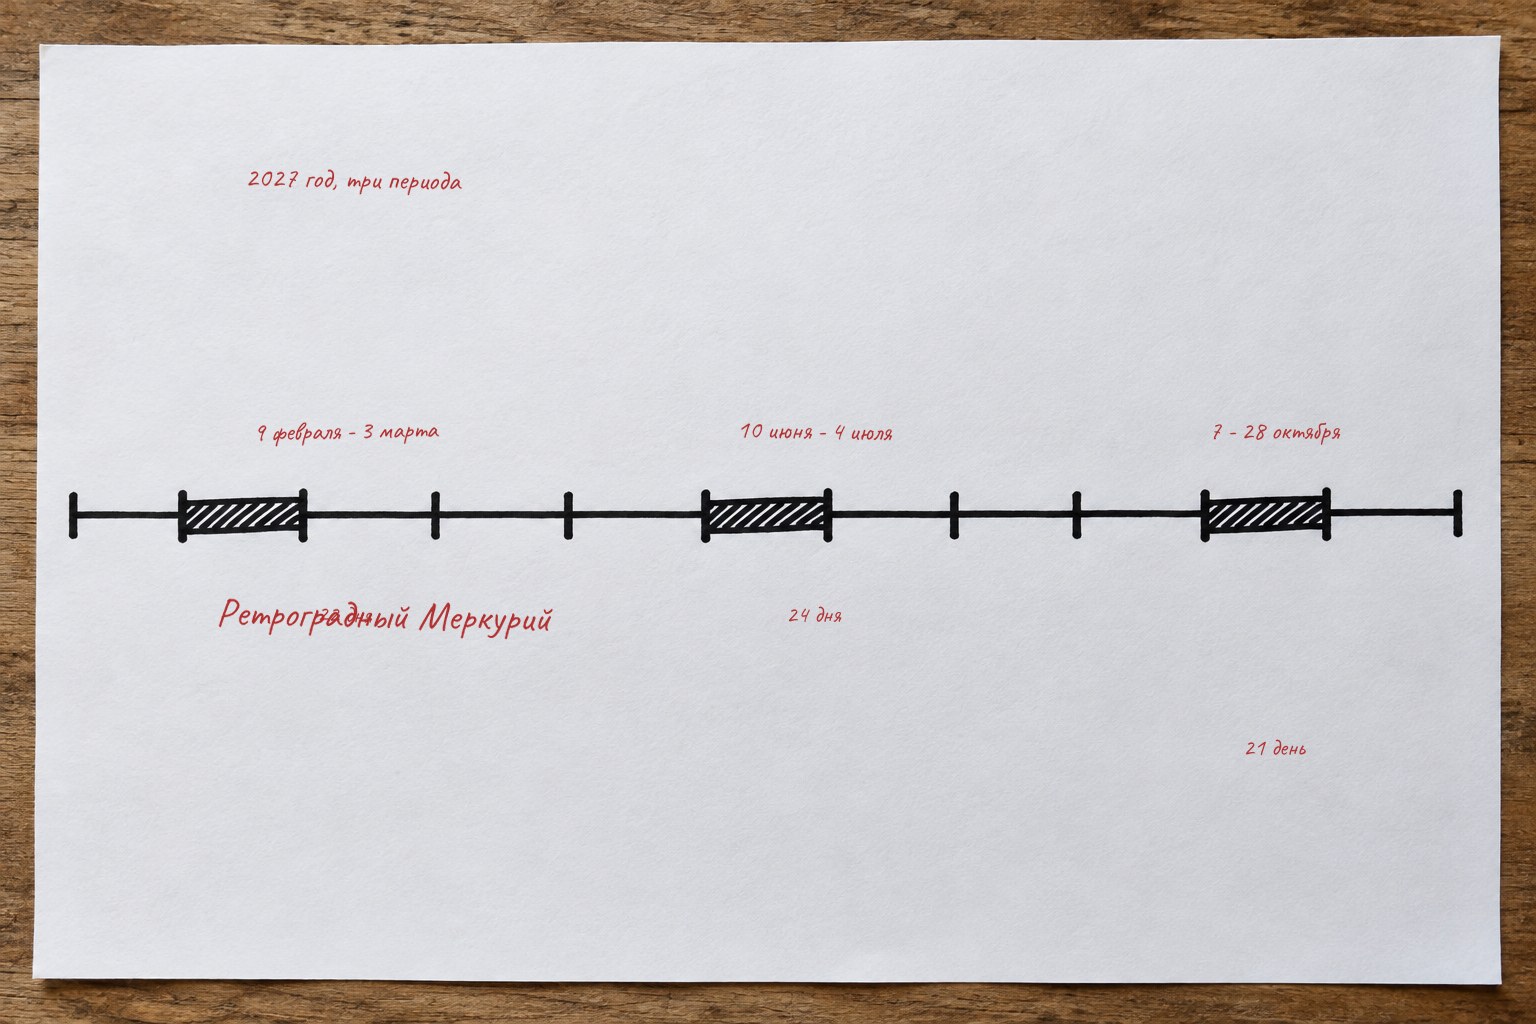 2027 год, три периода
9 февраля - 3 марта
10 июня - 4 июля
7 - 28 октября
Ретроградный Меркурий
24 дня
21 день